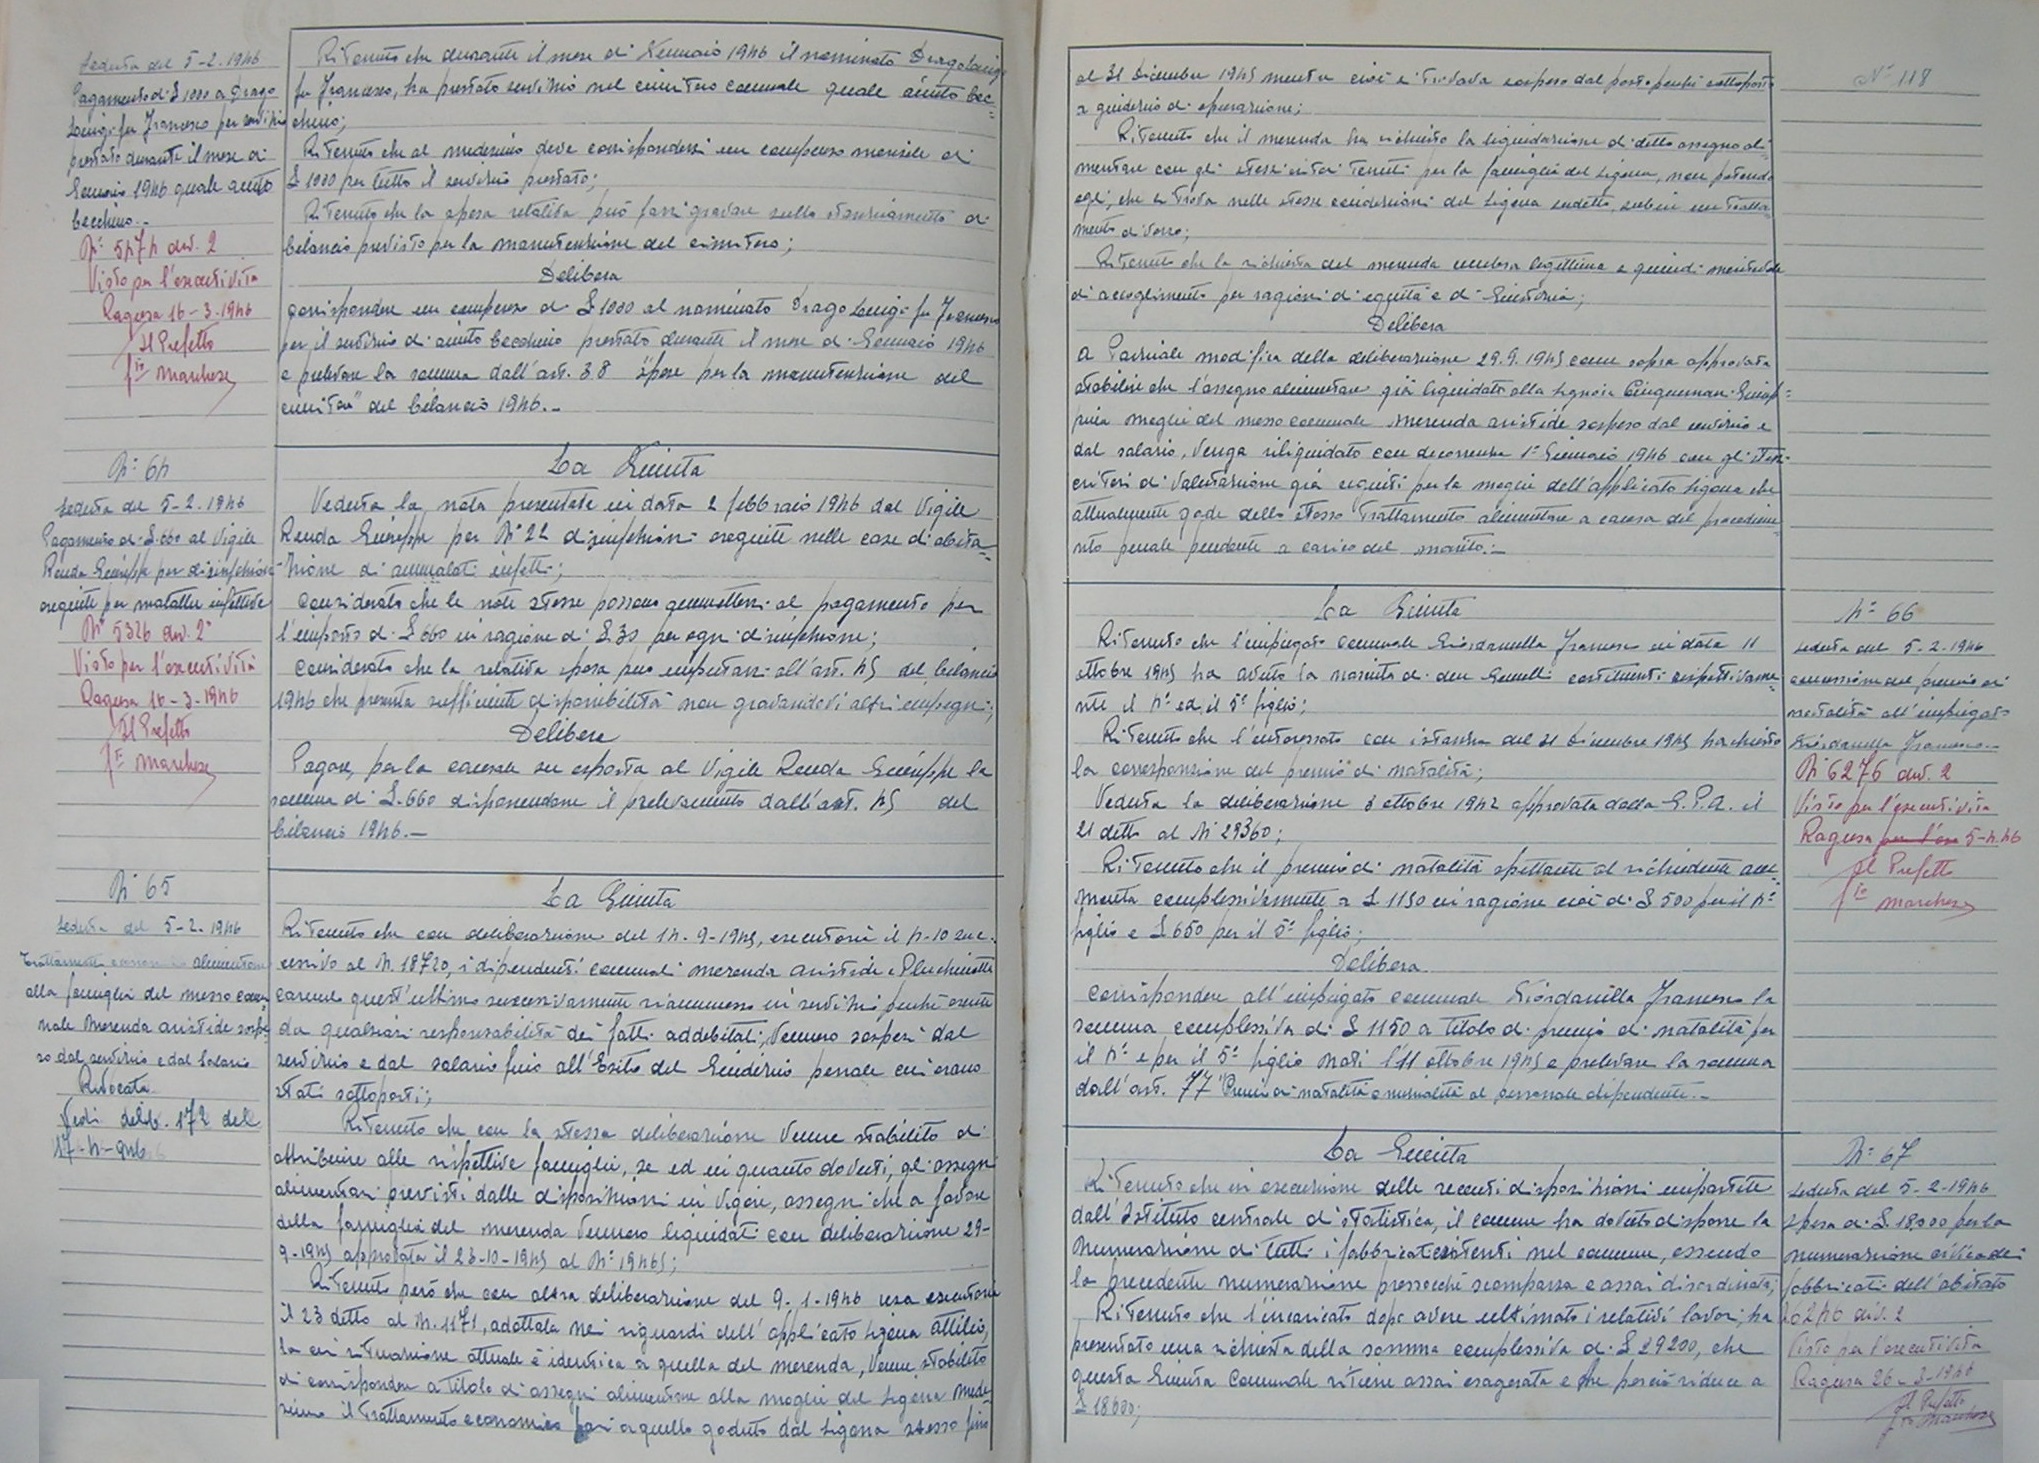 Seduta del 5-2-1946
Pagamento di £ 1000 a Drago
Luigi fu Francesco per servizio
prestato durante il mese di
Gennaio 1946 quale aiuto
becchino.-
N° 5474 div. 2
Visto per l'esecutività
Ragusa 16-3-1946
Il Prefetto
f.to Marchese
Ritenuto che durante il mese di Gennaio 1946 il nominato Drago Luigi
fu Francesco, ha prestato servizio nel cimitero comunale quale aiuto bec=
chino;
Ritenuto che al medesimo deve corrispondersi un compenso mensile di
£ 1000 per tutto il servizio prestato;
Ritenuto che la spesa relativa può farsi gravare sullo stanziamento di
bilancio previsto per la manutenzione del cimitero;
Delibera
corrispondere un compenso di £ 1000 al nominato Drago Luigi fu Francesco
per il servizio di aiuto becchino prestato durante il mese di Gennaio 1946
e prelevare la somma dall'art. 38 "Spese per la manutenzione del
cimitero" del bilancio 1946.-
N° 64
Seduta del 5-2-1946
Pagamento di £.660 al Vigile
Renda Giuseppe per disinfezioni
eseguite per malattie infettive
N° 5326 div. 2°
Visto per l'esecutività
Ragusa 16-3-1946
Il Prefetto
f.to Marchese
La Giunta
Veduta la nota presentata in data 2 febbraio 1946 dal Vigile
Renda Giuseppe per N° 22 disinfezioni eseguite nelle case di abita=
zione di ammalati infetti;
Considerato che le note stesse possono ammettersi al pagamento per
l'importo di £ 660 in ragione di £.30 per ogni disinfezione;
Considerato che la relativa spesa può imputarsi all'art. 45 del bilancio
1946 che presenta sufficiente disponibilità non gravandovi altri impegni;
Delibera
Pagare, per la causale su esposta al Vigile Renda Giuseppe la
somma di £.660 disponendone il prelevamento dall'art. 45 del
bilancio 1946.-
N° 65
Seduta del 5-2-1946
Trattamento alimentare
alla famiglia del messo comu
nale Merenda Aristide sospe
so dal servizio e dal salario
Revocata
Vedi delib. 172 del
17-4-946
La Giunta
Ritenuto che con deliberazione del 14-9-1945, esecutoria il 4-10 suc-
cessivo al N. 18720, i dipendenti comunali Merenda Aristide e Pluchinotta
Carmelo quest'ultimo successivamente riammesso in servizio perché esente
da qualsiasi responsabilità dei fatti addebitati, vennero sospesi dal
servizio e dal salario fino all'esito del Giudizio penale cui erano
stati sottoposti;
Ritenuto che con la stessa deliberazione venne stabilito di
attribuire alle rispettive famiglie, se ed in quanto dovuti, gli assegni
alimentari previsti dalle disposizioni in vigore, assegni che a favore
della famiglia del Merenda vennero liquidati con deliberazione 29-
9-1945 approvata il 23-10-1945 al N° 19465;
Ritenuto però che con altra deliberazione del 9-1-1946 resa esecutoria
il 23 detto al N. 1171, adottata nei riguardi dell'applicato Ligena Attilio,
la cui situazione attuale è identica a quella del Merenda, venne stabilito
di corrispondere a titolo di assegni alimentari alla moglie del Ligena mede
simo il trattamento economico pari a quello goduto dal Ligena stesso fino
N° 118
al 31 Dicembre 1945 mentre cioè si trovava sospeso dal posto perché sottoposto
a giudizio di epurazione;
Ritenuto che il Merenda ha richiesto la liquidazione di detto assegno ali=
mentare con gli stessi criteri tenuti per la famiglia del Ligena, non potendo
egli, che si trova nelle stesse condizioni del Ligena sudetto, subire un tratta=
mento diverso;
Ritenuto che la richiesta del Merenda sembra legittima e quindi meritevole
di accoglimento per ragioni di equità e di Giustizia;
Delibera
A Parziale modifica della deliberazione 29.9.1945 come sopra approvata
stabilire che l'assegno alimentare già liquidato alla Signora Cinquemani Giusep=
pina moglie del messo comunale Merenda Aristide sospeso dal servizio e
dal salario, venga riliquidato con decorrenza 1° Gennaio 1946 con gli stessi
criteri di valutazione già seguiti per la moglie dell'applicato Ligena che
attualmente gode dello stesso trattamento alimentare a causa del procedime
nto penale pendente a carico del marito.-
La Giunta
Ritenuto che l'impiegato comunale Giordanella Francesco in data 11
ottobre 1945 ha avuto la nascita di due Gemelli costituenti rispettivame=
nte il 4° ed il 5° figlio;
Ritenuto che l'interessato con istanza del 31 Dicembre 1945 ha chiesto
la corresponsione del premio di natalità;
Veduta la deliberazione 8 ottobre 1942 approvata dalla G.P.A. il
21 detto al N° 29360;
Ritenuto che il premio di natalità spettante al richiedente am=
monta complessivamente a £ 1150 in ragione cioè di £ 500 per il 4°
figlio e £ 650 per il 5° figlio;
Delibera
Corrispondere all'impiegato comunale Giordanella Francesco la
somma complessiva di £ 1150 a titolo di premio di natalità per
il 4° e per il 5° figlio nati l'11 ottobre 1945 e prelevare la somma
dall'art. 77 "Premi di natalità e nuzialità al personale dipendente.-
N° 66
Seduta del 5-2-1946
concessione del premio di
natalità all'impiegato
Giordanella Francesco.-
N° 6276 div. 2
Visto per l'esecutività
Ragusa per l'ese 5-4-46
Il Prefetto
f.to Marchese
La Giunta
Ritenuto che in esecuzione delle recenti disposizioni impartite
dall'Istituto centrale di statistica, il comune ha dovuto disporre la
numerazione di tutti i fabbricati esistenti nel comune, essendo
la precedente numerazione pressocché scomparsa e assai disordinata;
Ritenuto che l'incaricato dopo avere ultimato i relativi lavori, ha
presentato una richiesta della somma complessiva di £ 29200, che
questa Giunta Comunale ritiene assai esagerata e che perciò riduce a
£ 18000;
N° 67
Seduta del 5-2-1946
Spesa di £.18000 per la
numerazione civica dei
fabbricati dell'abitato
div. 2
Visto per l'esecutività
Ragusa 26-3-1946
Il Prefetto
f.to Marchese